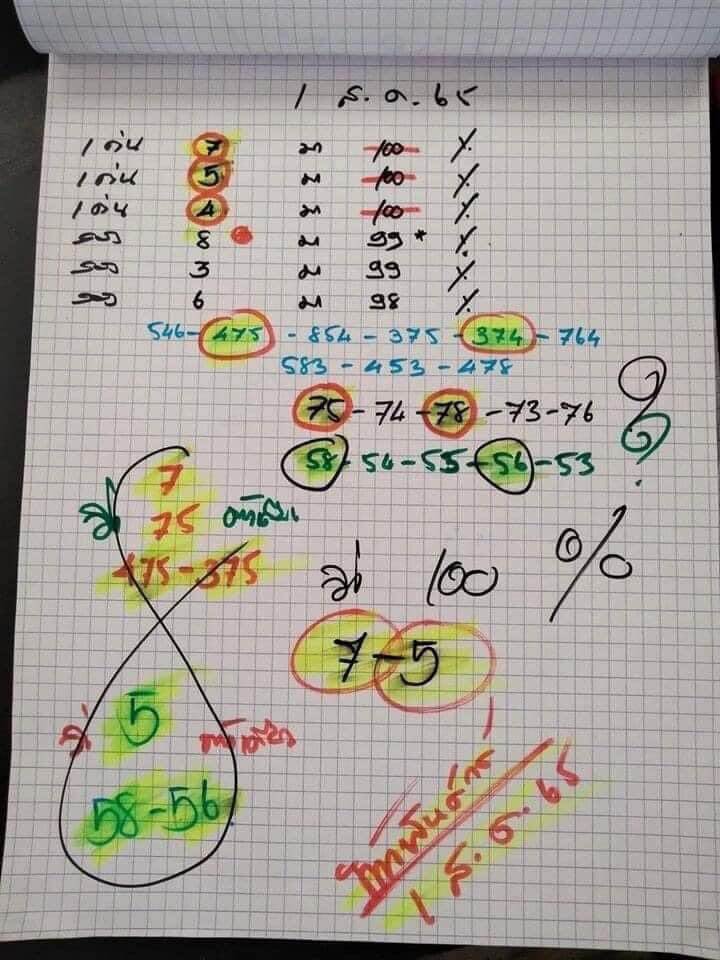 1 ส.ค. 65
1 เด่น 7 มา 100 %
1 เด่น 5 มา 100 %
1 เด่น 4 มา 100 %
รอง 8 มา 99 * %
รอง 3 มา 99 %
รอง 6 มา 98 %
546-475-854-375-374-764
583-453-478
75-74-78-73-76
58-54-55-56-53
7
75
475-375
100 %
7-5
5
58-56
1 ส.ค. 65